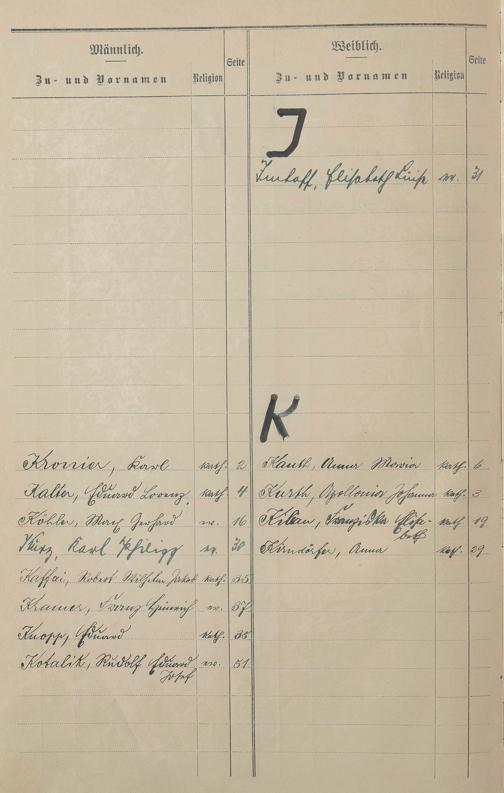 Männlich.
Zu- und Vornamen Religion Seite
Kronier, Karl kath. 2
Kalter, Eduard Lorenz, kath. 4
Köhler, Max Gerhard ev. 16
Kurz, Karl Philipp ev. 30
Kaffai, Robert Wilhelm Jakob kath. 35
Kramer, Franz Heinrich ev. 37
Knopp, Eduard kath. 35
Kotalik, Rudolf Eduard ev. 51
Josef
Weiblich.
Zu- und Vornamen Religion Seite
I
Imhoff, Elisabeth Luise ev. 31
K
Kauth, Anna Maria kath. 6
Kurth, Apollonia Johanna kath. 3
Kilian, Franziska Elisa- kath 19
beth
Kirndörfer, Anna kath. 29